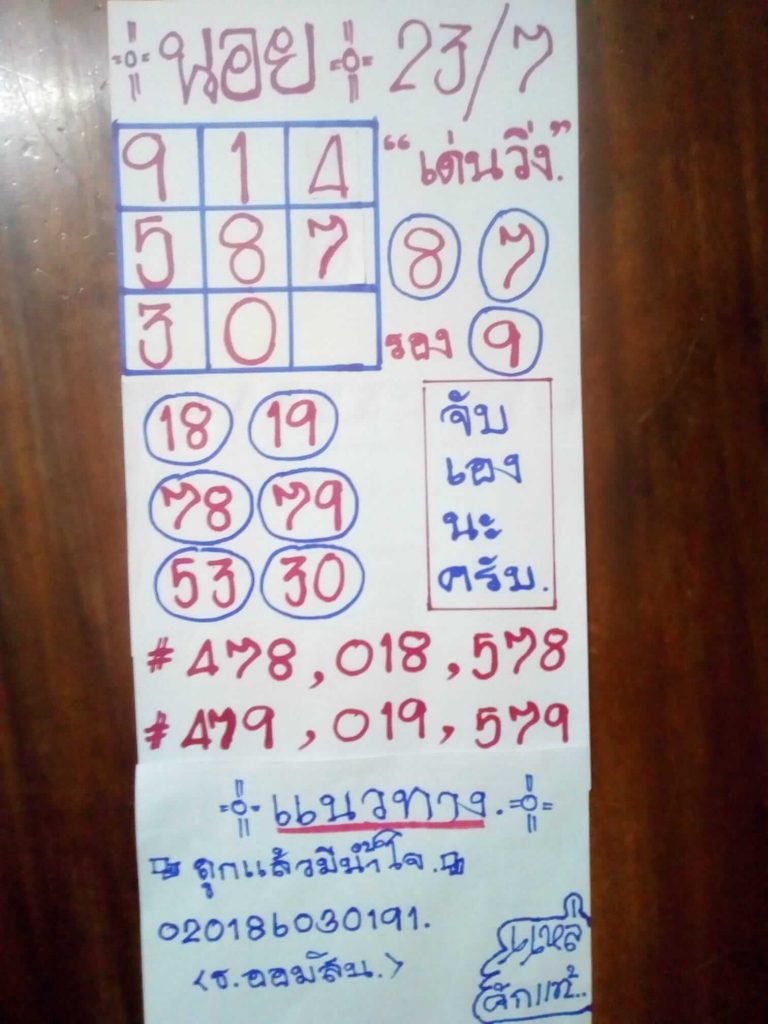 นอย 23/7
9 1 4
5 8 7
3 0
"เด่นวิ่ง."
8 7
รอง 9
18 19
78 79
53 30
จับ
เอง
นะ
ครับ.
# 478, 018, 578
# 479, 019, 579
แนวทาง.
ถูกแล้วมีน้ำใจ.
020186030191.
(ธ.ออมสิน.)